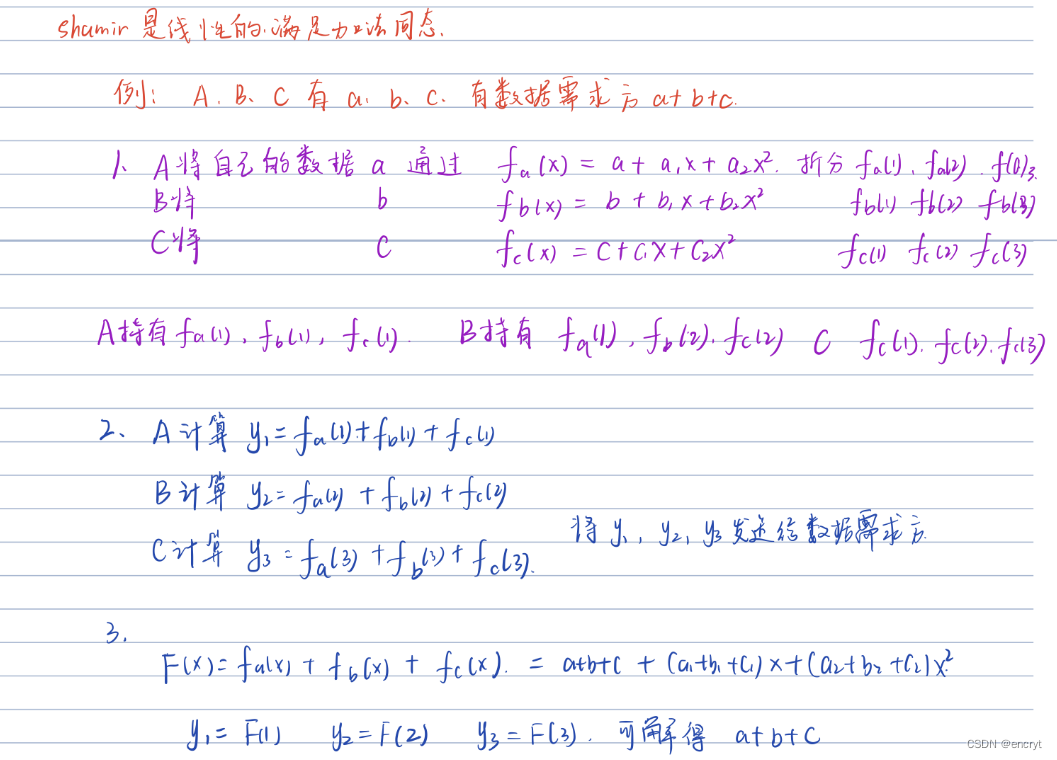 shamir 是线性的.满足加法同态.
例: A. B、C 有 a. b. c. 有数据需求方 a+b+c.
1、A将自己的数据 a 通过 fa(x) = a + a₁x + a₂x². 拆分 fa(1). fa(2). f(0)3.
B将 b fb(x) = b + b₁x + b₂x² fb(1) fb(2) fb(3)
C将 C fc(x) = C + C₁X + C₂X² fc(1) fc(2) fc(3)
A持有 fa(1), fb(1), fc(1). B持有 fa(1), fb(2). fc(2) C fc(1). fc(2). fc(3)
2、A计算 y₁ = fa(1) + fb(1) + fc(1)
B计算 y₂ = fa(2) + fb(2) + fc(2)
将 y₁, y₂, y₃ 发送给数据需求方.
C计算 y₃ = fa(3) + fb(3) + fc(3).
3.
F(x) = fa(x) + fb(x) + fc(x). = a+b+c + (a₁+b₁+c₁)x + (a₂+b₂+c₂)x².
y₁ = F(1) y₂ = F(2) y₃ = F(3). 可解得 a+b+c
CSDN @encryt